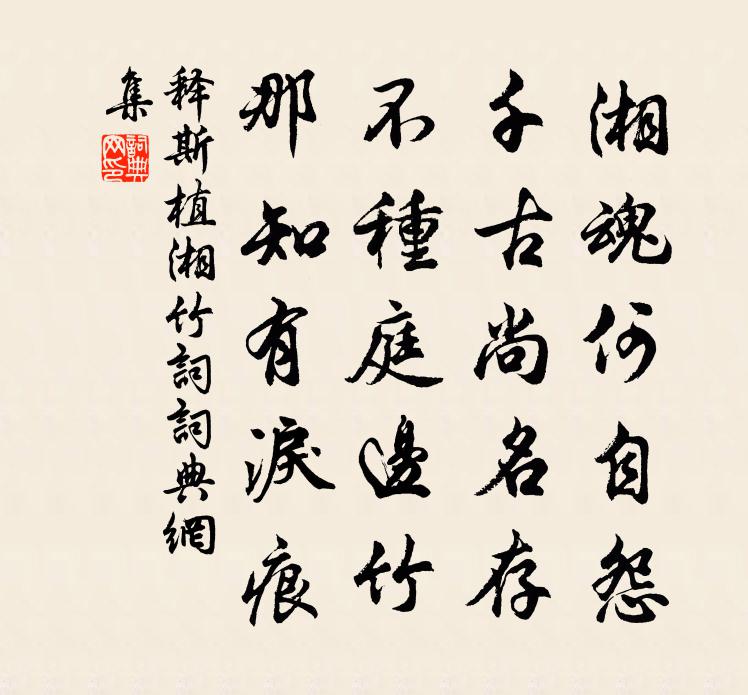 湘魂何自怨
千古尚名存
不種庭邊竹
那知有淚痕
释斯植湘竹詞詞典網
集
詞典
网印